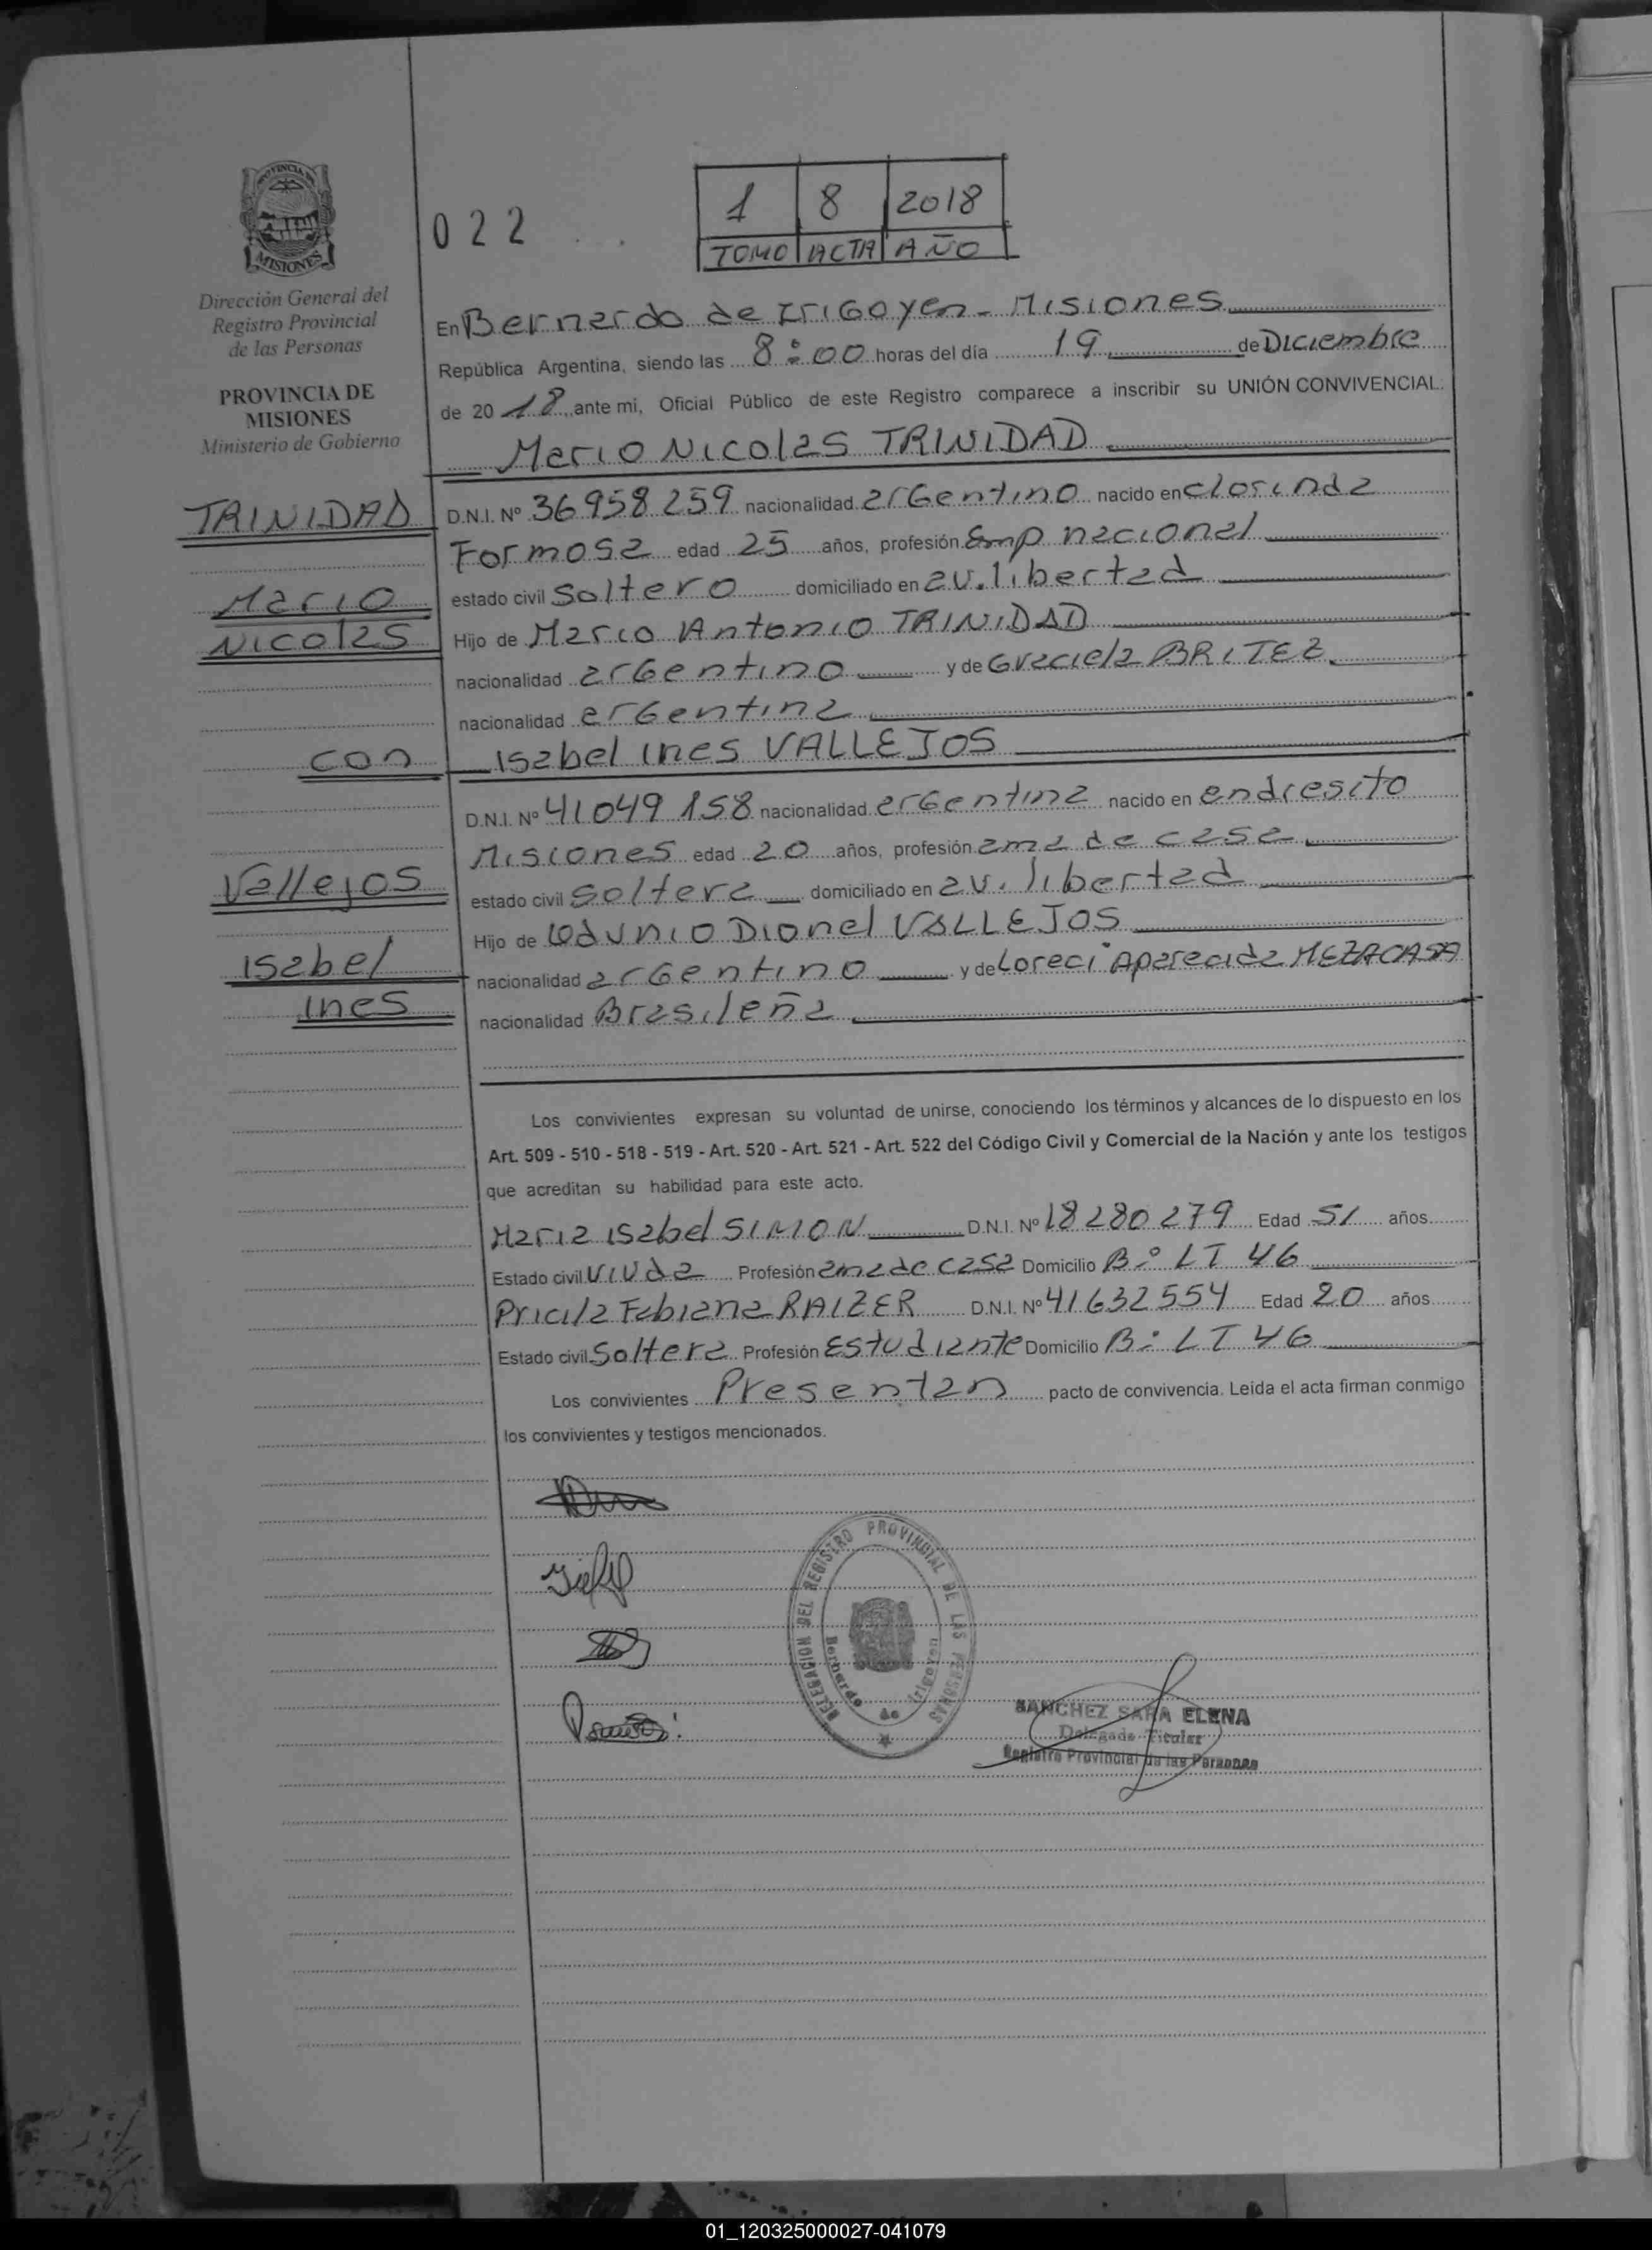 PROVINCIA DE
MISIONES
Dirección General del
Registro Provincial
de las Personas
PROVINCIA DE
MISIONES
Ministerio de Gobierno
022
1 8 2018
TOMO ACTA AÑO
En Bernardo de Irigoyen - Misiones
República Argentina, siendo las 8:00 horas del día 19 de Diciembre
de 2018, ante mi, Oficial Público de este Registro comparece a inscribir su UNIÓN CONVIVENCIAL:
Mario Nicolas TRINIDAD
TRINIDAD
Mario
Nicolas
con
Vallejos
Isabel
Ines
D.N.I. Nº 36958259 nacionalidad argentino nacido en clorinda
Formosa edad 25 años, profesión Emp nacional
estado civil Soltero domiciliado en av. libertad
Hijo de Marco Antonio TRINIDAD
nacionalidad argentino y de Graciela BRITEZ
nacionalidad argentina
Isabel Ines VALLEJOS
D.N.I. Nº 41049158 nacionalidad argentina nacido en andresito
Misiones edad 20 años, profesión ama de casa
estado civil soltera domiciliado en av. libertad
Hijo de Dionel VALLEJOS
nacionalidad argentino y de Loreci Aparecida MEZACASA
nacionalidad Brasileña
Los convivientes expresan su voluntad de unirse, conociendo los términos y alcances de lo dispuesto en los
Art. 509 - 510 - 518 - 519 - Art. 520 - Art. 521 - Art. 522 del Código Civil y Comercial de la Nación y ante los testigos
que acreditan su habilidad para este acto.
Maria Isabel SIMON D.N.I. Nº 18280279 Edad 51 años
Estado civil Viuda Profesión ama de casa Domicilio Bº LT 46
Pricila Fabiana RAIZER D.N.I. Nº 41632554 Edad 20 años
Estado civil Soltera Profesión Estudiante Domicilio Bº LT 46
Los convivientes Presentan pacto de convivencia. Leida el acta firman conmigo
los convivientes y testigos mencionados.
DELEGACION DEL REGISTRO PROVINCIAL DE LAS PERSONAS
Bernardo de Irigoyen
SANCHEZ SARA ELENA
Delegada Titular
Registro Provincial de las Personas
01_120325000027-041079